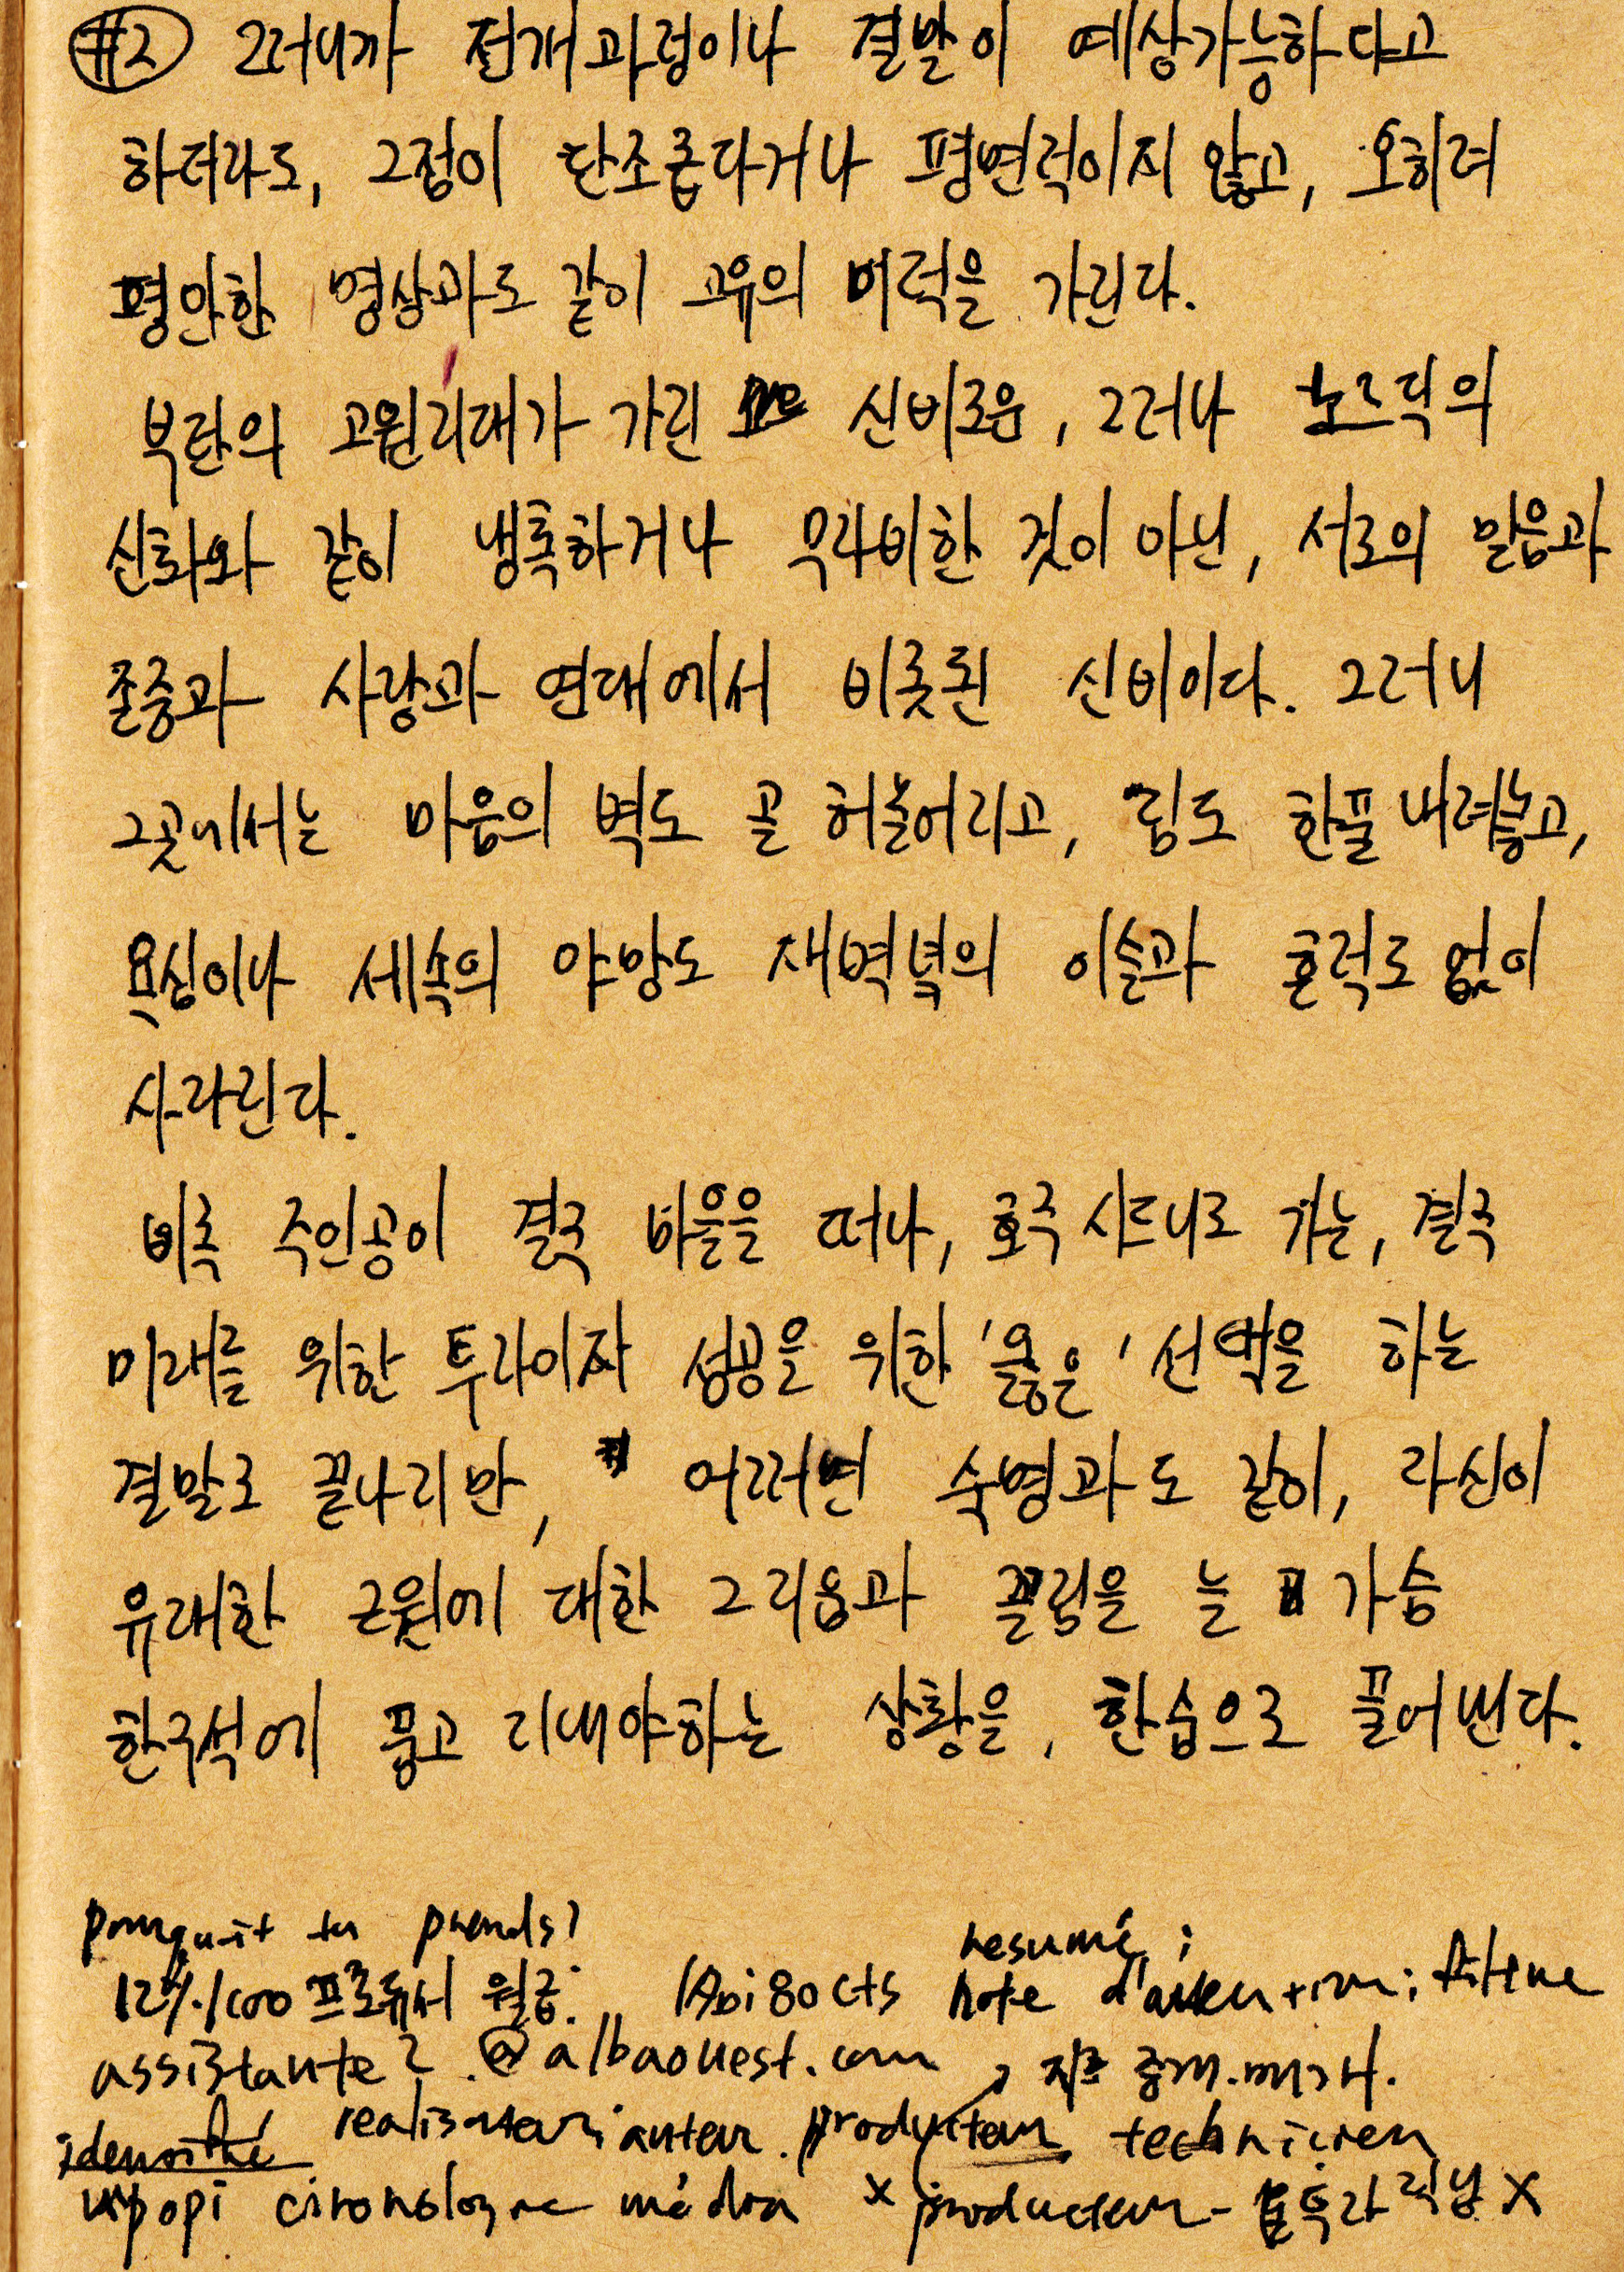 #2 그러니까 전개과정이나 결말이 예상가능하다고
하더라도, 그점이 단조롭다거나 평면적이지 않고, 오히려
평안한 명상과도 같이 고유의 미덕을 가진다.
부탄의 고원지대가 가진 신비로움, 그러나 노르딕의
신화와 같이 냉혹하거나 무자비한 것이 아닌, 서로의 믿음과
존중과 사랑과 연대에서 비롯된 신비이다. 그러니
그곳에서는 마음의 벽도 곧 허물어지고, 짐도 한풀 내려놓고,
욕심이나 세속의 야망도 새벽녘의 이슬과 흔적도 없이
사라진다.
비록 주인공이 결국 마을을 떠나, 호주 시드니로 가는, 결국
미래를 위한 투자이자 성공을 위한 '옳은' 선택을 하는
결말로 끝나지만, 어쩌면 숙명과도 같이, 자신이
유래한 근원에 대한 그리움과 끌림을 늘 가슴
한구석에 품고 지내야하는 상황을, 한숨으로 끌어낸다.
tu prends?
resumé;
프로듀서 월급. note
assistante? @albaouest.com 중개.매개.
auteur. producteur technicien
média x producteur - x